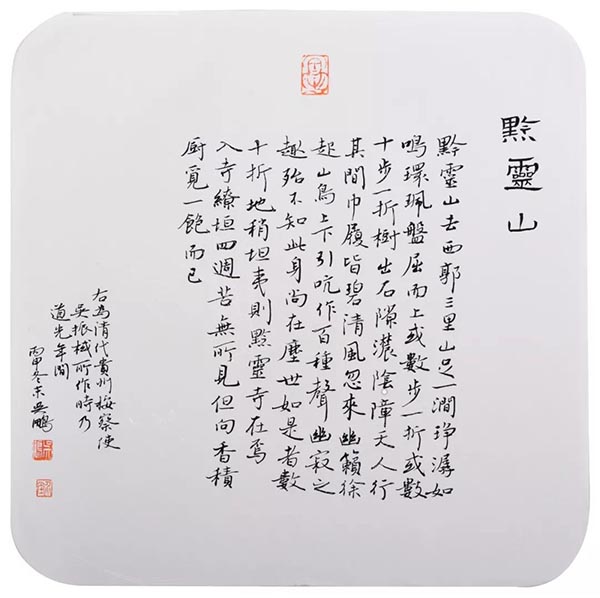 黔靈山
黔靈山去西郭三里山足一澗琤潺如
鳴環珮盤屈而上或數步一折或數
十步一折樹出石隙濃陰障天人行
其間巾履皆碧清風忽來幽籟徐
起山鳥上下引吭作百種聲幽寂之
趣殆不知此身尚在塵世如是者數
十折地稍坦夷則黔靈寺在焉
入寺繚垣四週苦無所見但向香積
厨覓一飽而已
右為清代貴州按察使
吳振棫所作時乃
道光年間
丙申冬末吳鵬